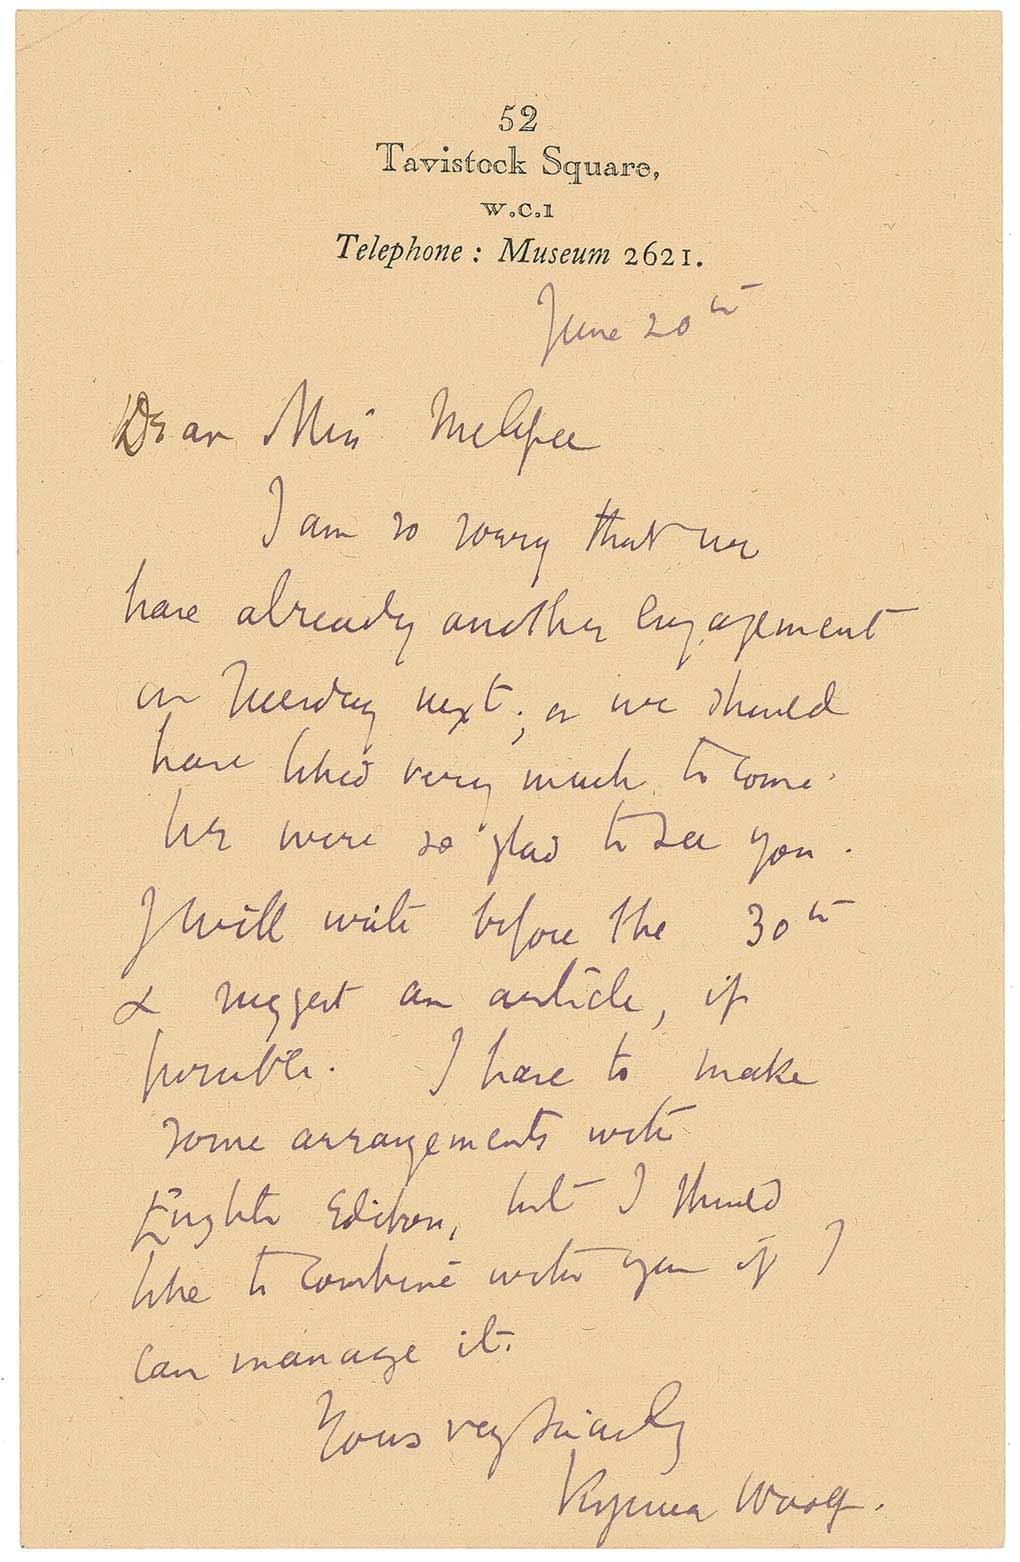 52
Tavistock Square,
W.C.1
Telephone: Museum 2621.
June 20th
Dear Miss McAfee
I am so sorry that we
have already another engagement
on Tuesday next; or we should
have liked very much to come.
We were so glad to see you.
I will write before the 30th
& suggest an article, if
possible. I have to make
some arrangements with
English Editors, but I should
like to combine with you if I
can manage it.
Yours very sincerely
Virginia Woolf.